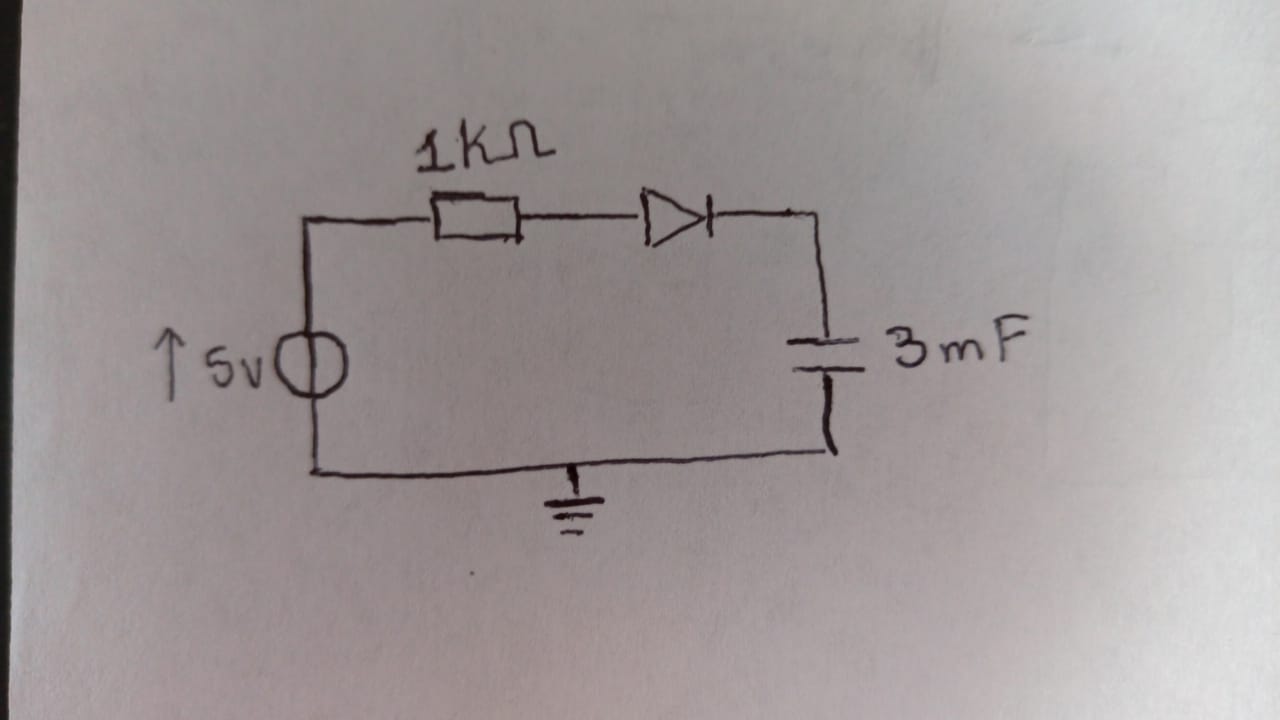 1kΩ
↑ 5v
3mF